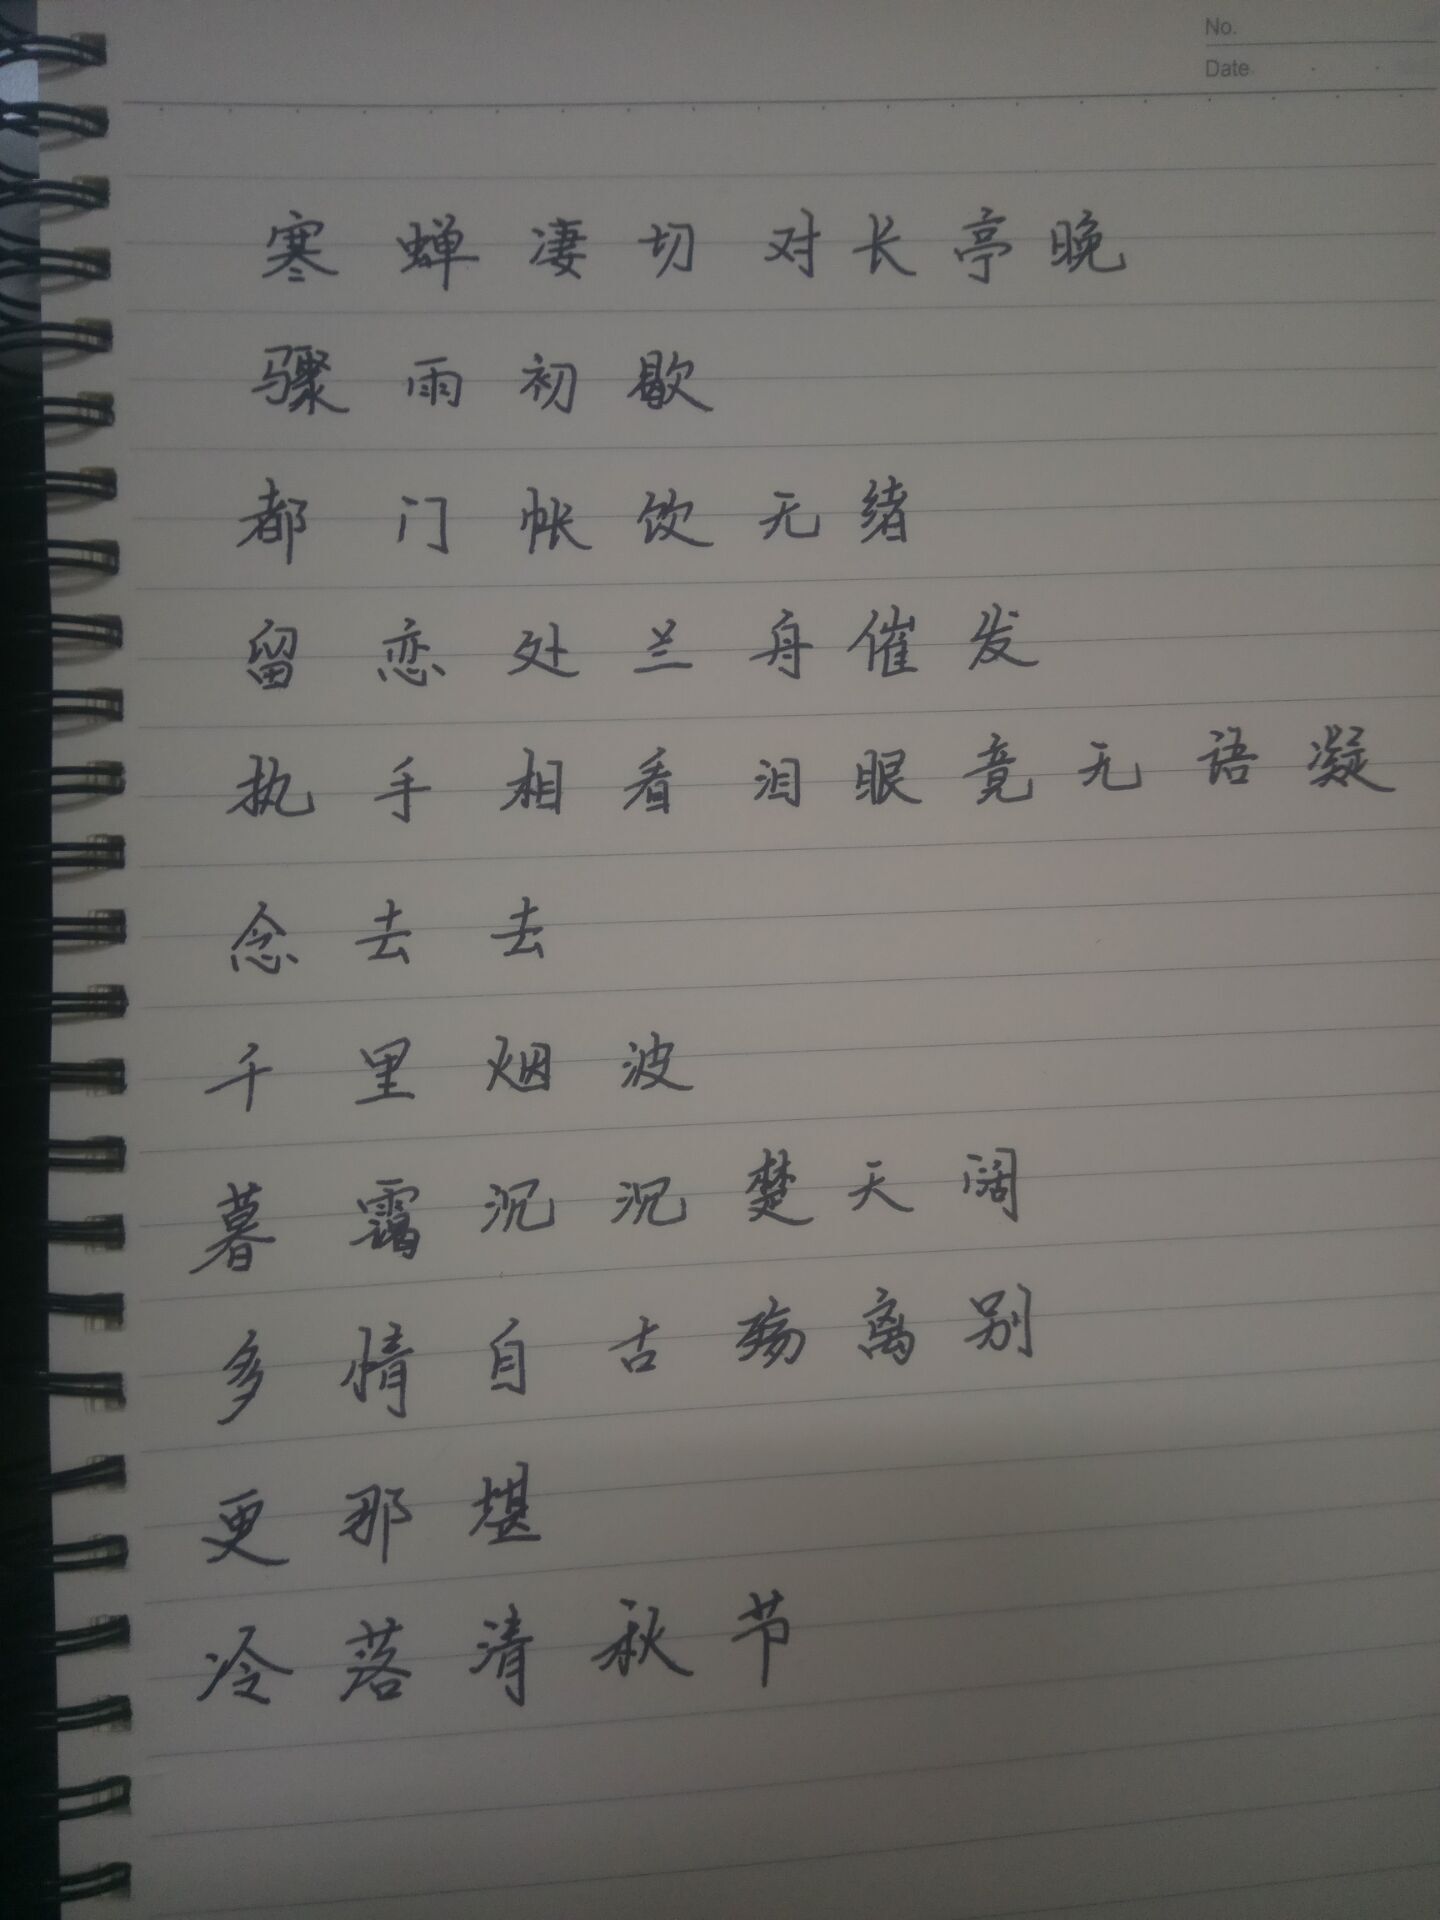 No.
Date
寒蝉凄切对长亭晚
骤雨初歇
都门帐饮无绪
留恋处兰舟催发
执手相看泪眼竟无语凝
念去去
千里烟波
暮霭沉沉楚天阔
多情自古殇离别
更那堪
冷落清秋节